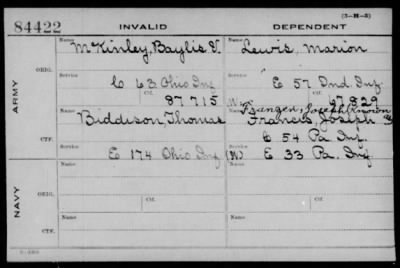 (3-H-3)
84422 INVALID DEPENDENT
Name Name
McKinley, Baylis V. Lewis, Marion
ORIG. Service Service
C 63 Ohio Inf E 57 Ind. Inf.
ARMY Ctf. Ctf.
87715 97829
Name
Biddison, Thomas Francis, Joseph
C 54 Pa. Inf.
E 174 Ohio Inf (N) E 33 Pa. Inf
Name Name
ORIG. Service Service
NAVY Ctf. Ctf.
Name Name